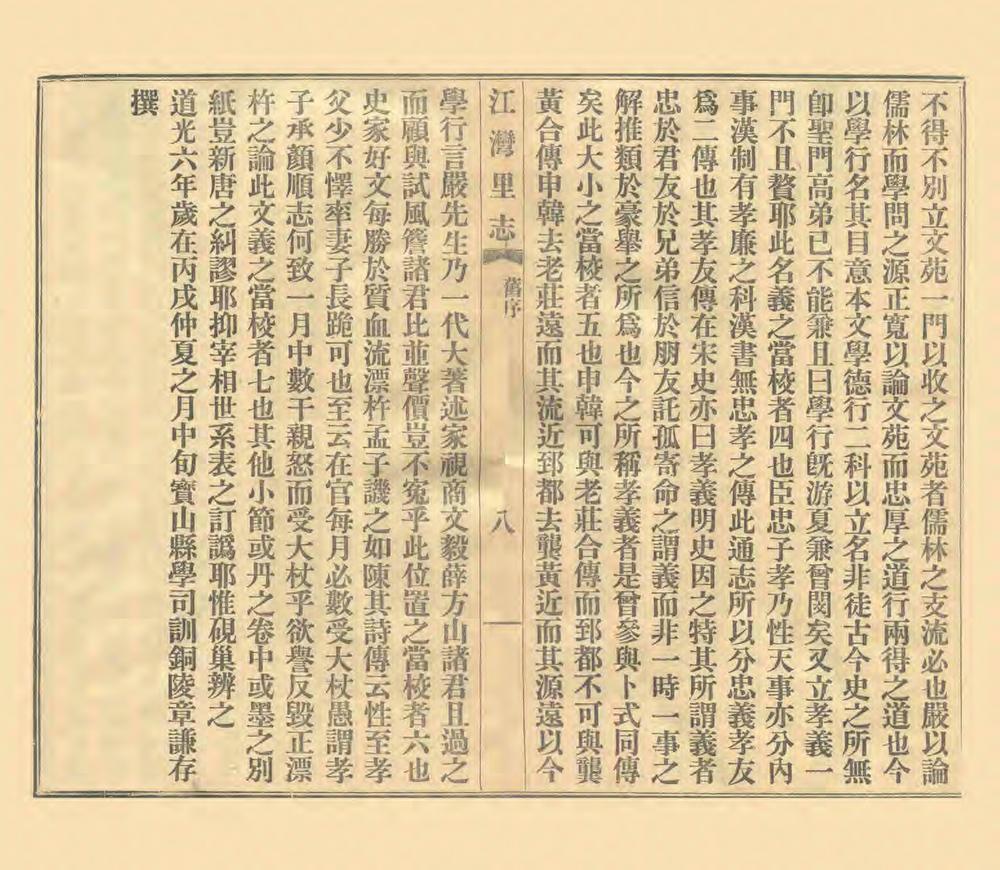 不得不別立文苑一門以收之文苑者儒林之支流必也嚴以論
儒林而學問之源正寬以論文苑而忠厚之道行兩得之道也今
以學行名其目意本文學德行二科以立名非徒古今史之所無
卽聖門高弟已不能兼且曰學行旣游夏兼曾閔矣又立孝義一
門不且贅耶此名義之當校者四也臣忠子孝乃性天事亦分內
事漢制有孝廉之科漢書無忠孝之傳此通志所以分忠義孝友
爲二傳也其孝友傳在宋史亦曰孝義明史因之特其所謂義者
忠於君友於兄弟信於朋友託孤寄命之謂義而非一時一事之
解推類於豪舉之所爲也今之所稱孝義者是曾參與卜式同傳
矣此大小之當校者五也申韓可與老莊合傳而郅都不可與龔
黃合傳申韓去老莊遠而其流近郅都去龔黃近而其源遠以今
江灣里志
舊序
八
學行言嚴先生乃一代大著述家視商文毅薛方山諸君且過之
而顧與試風簷諸君比並聲價豈不寃乎此位置之當校者六也
史家好文每勝於質血流漂杵孟子譏之如陳其詩傳云性至孝
父少不懌率妻子長跪可也至云在官每月必數受大杖愚謂孝
子承顏順志何致一月中數干親怒而受大杖乎欲譽反毀正漂
杵之論此文義之當校者七也其他小節或丹之卷中或墨之別
紙豈新唐之糾謬耶抑宰相世系表之訂譌耶惟硯巢辨之
道光六年歲在丙戌仲夏之月中旬寶山縣學司訓銅陵章謙存
撰